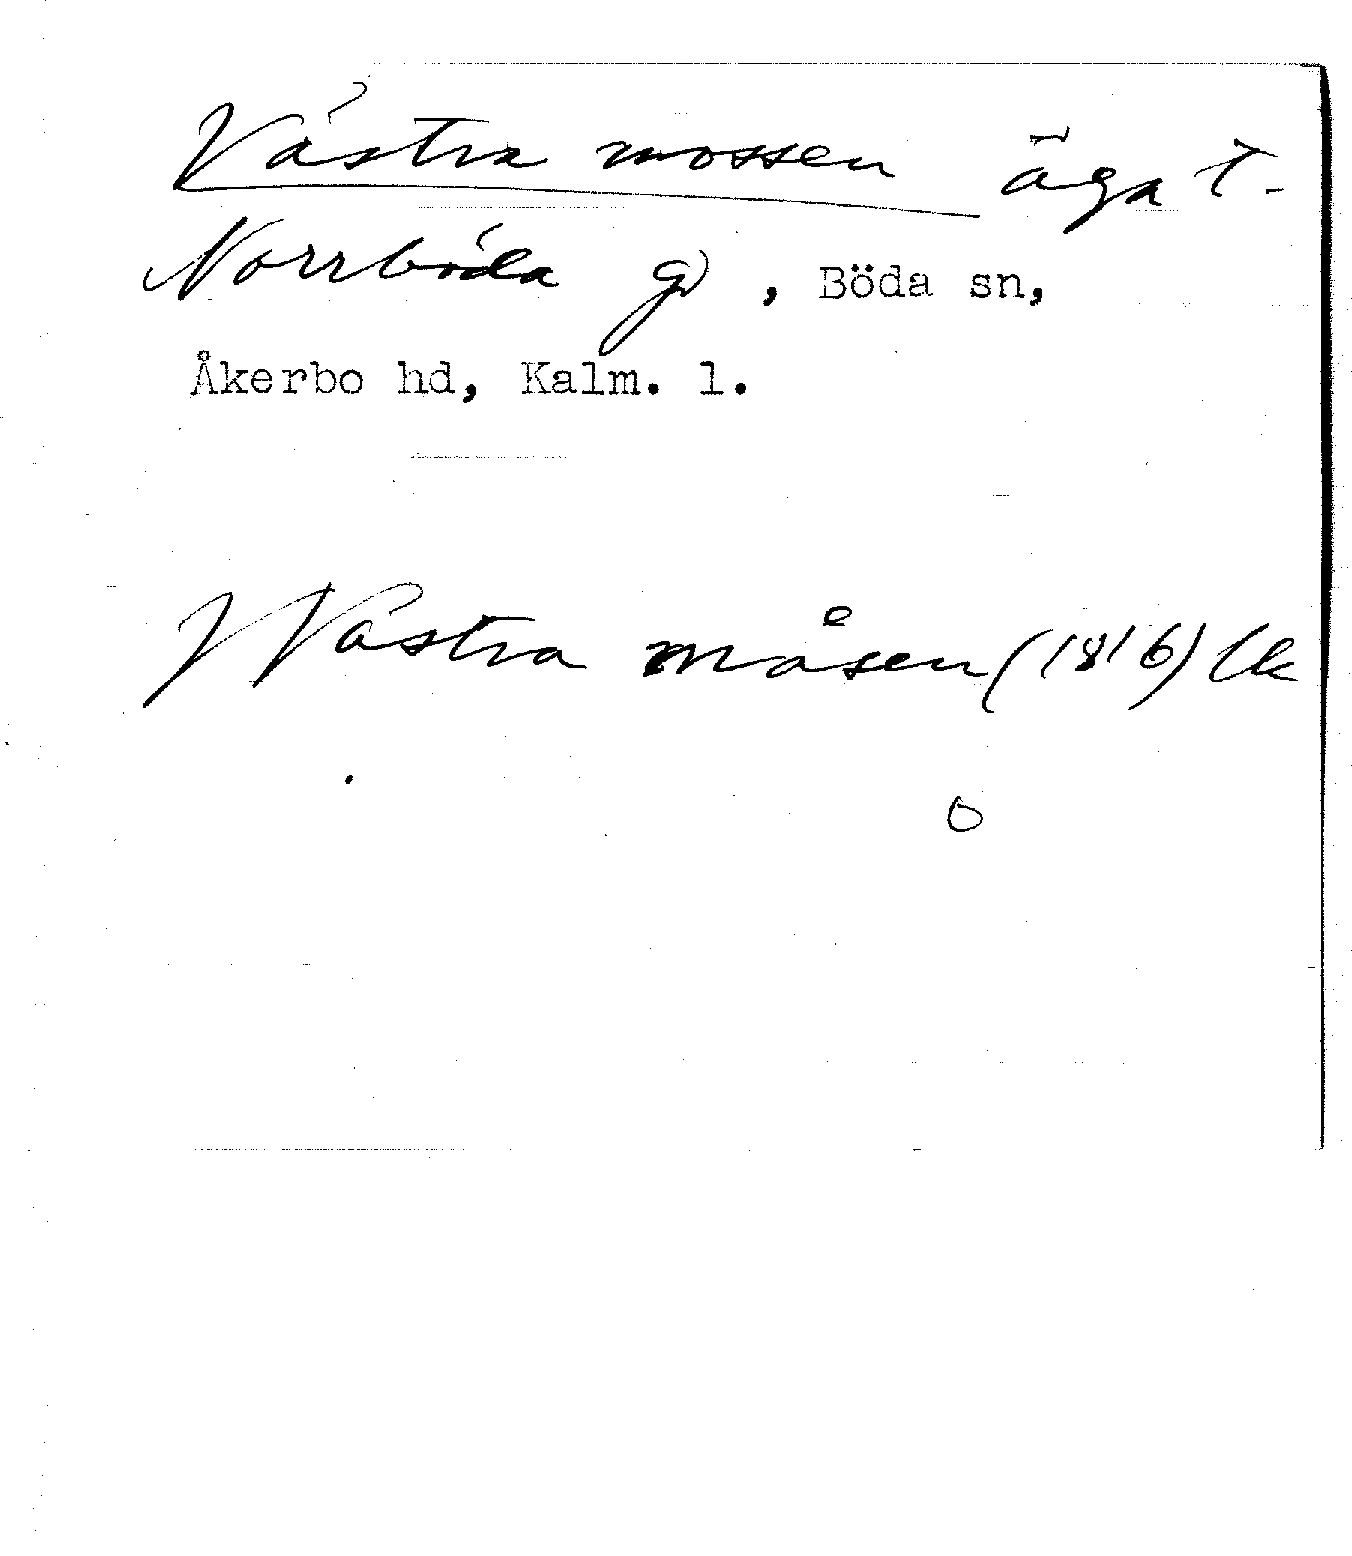 Västra mossen äga t.
Norrböda g), Böda sn,
Åkerbo hd, Kalm. l.
Wästra måsen (1816) lk